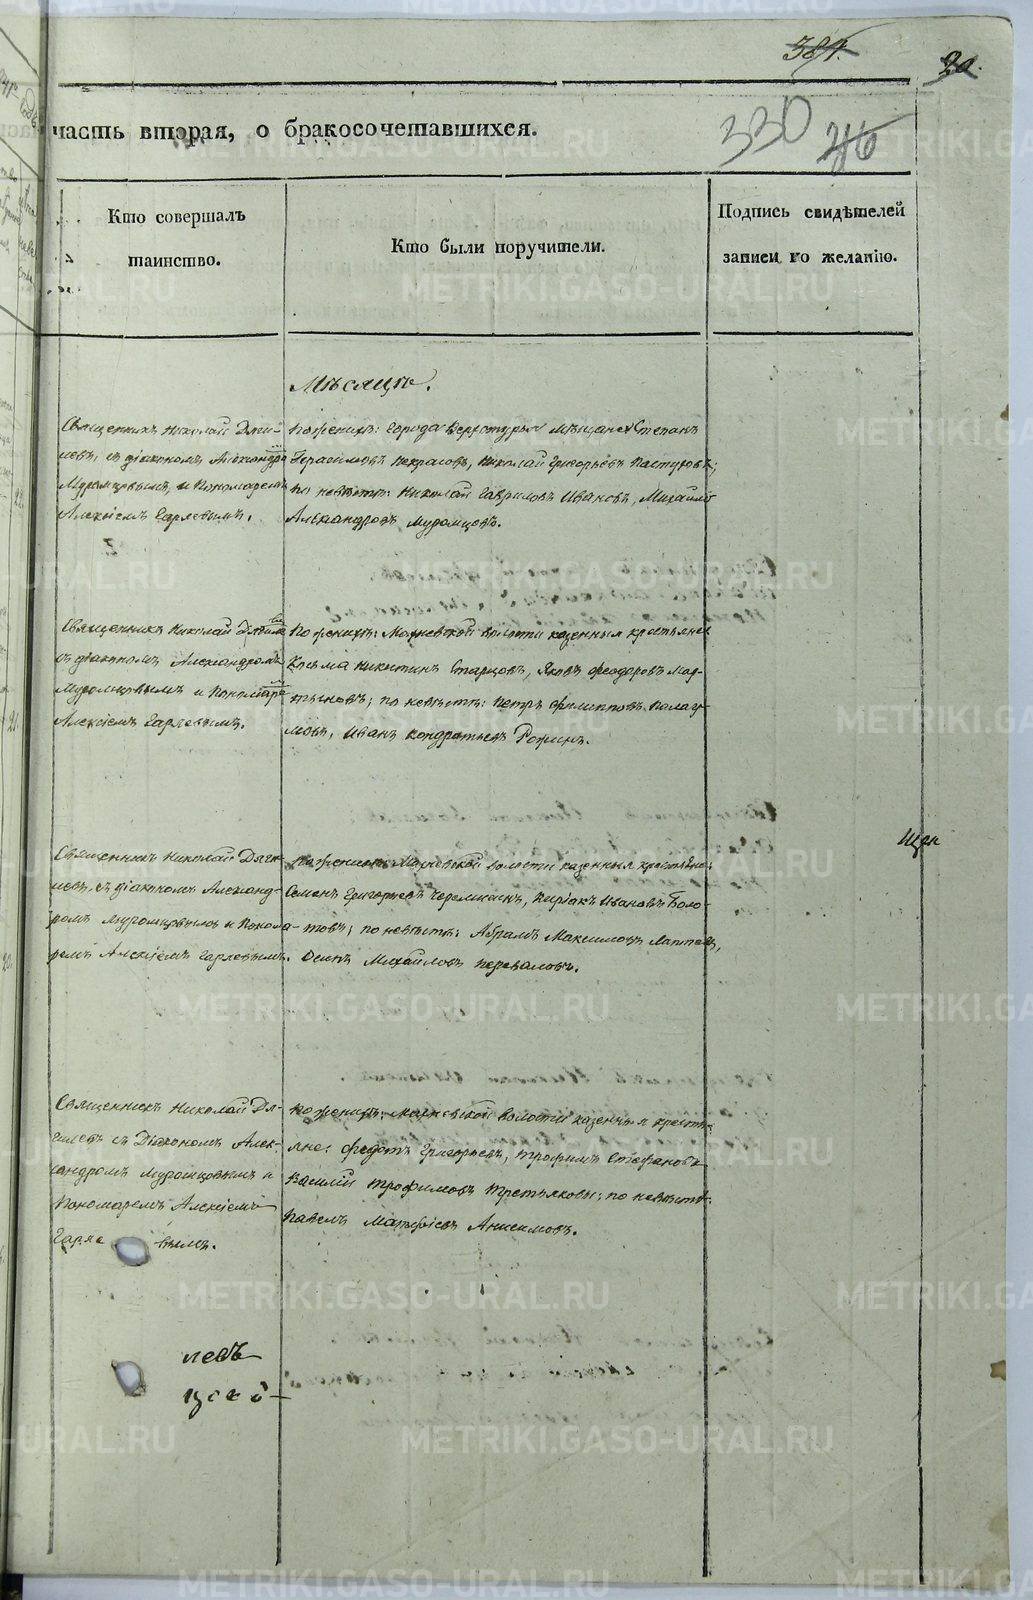 384.
20.
часть вторая, о бракосочетавшихся.
330
Кто совершалъ
таинство.
Кто были поручители.
Подпись свидѣтелей
записи по желанію.
Мѣсяцъ.
Священникъ Николай Дяги-
левъ, съ діакономъ Александро
Муромцовымъ и Пономаремъ
Алексіемъ Гаряевымъ.
По женихѣ: города Верхотурья мѣщане Степанъ
Герасимовъ Некрасовъ, Николай Григорьевъ Пастуховъ;
по невѣстѣ: Николай Гавриловъ Ивановъ, Михайло
Александровъ Муромцовъ.
Священникъ Николай Дягиле
съ діакономъ Александромъ
Муромцовымъ и Пономаре
Алексіемъ Гаряевымъ.
По женихѣ: Махневской волости казенныя крестьяне
Косьма Никитинъ Старцовъ, Яковъ Феодоровъ Мар-
тыновъ; по невѣстѣ: Петръ Филипповъ
Иванъ Кондратьевъ
Священникъ Николай Дяги-
левъ, съ діакономъ Александ-
ромъ Муромцовымъ и Понома-
ремъ Алексіемъ Гаряевымъ.
По женихѣ: Махневской волости казенныя крестьяне:
Семенъ Григорьевъ Черемисинъ, Киріакъ Ивановъ Боло-
товъ; по невѣстѣ: Абрамъ Максимовъ Лаптевъ,
Осипъ Михайловъ Переваловъ.
Щек
Священникъ Николай Дя-
гилевъ съ Діакономъ Алек-
сандромъ Муромцовымъ и
Пономаремъ Алексіемъ
Гаряевымъ.
По женихѣ: Махневской волости казенныя крестья-
мне: Федотъ Григорьевъ, Трофимъ Стефановъ
Василій Трофимовъ Третьяковы; по невѣстѣ:
Павелъ Матфіевъ Анисимовъ.
левъ
METRIKI.GASO-URAL.RU